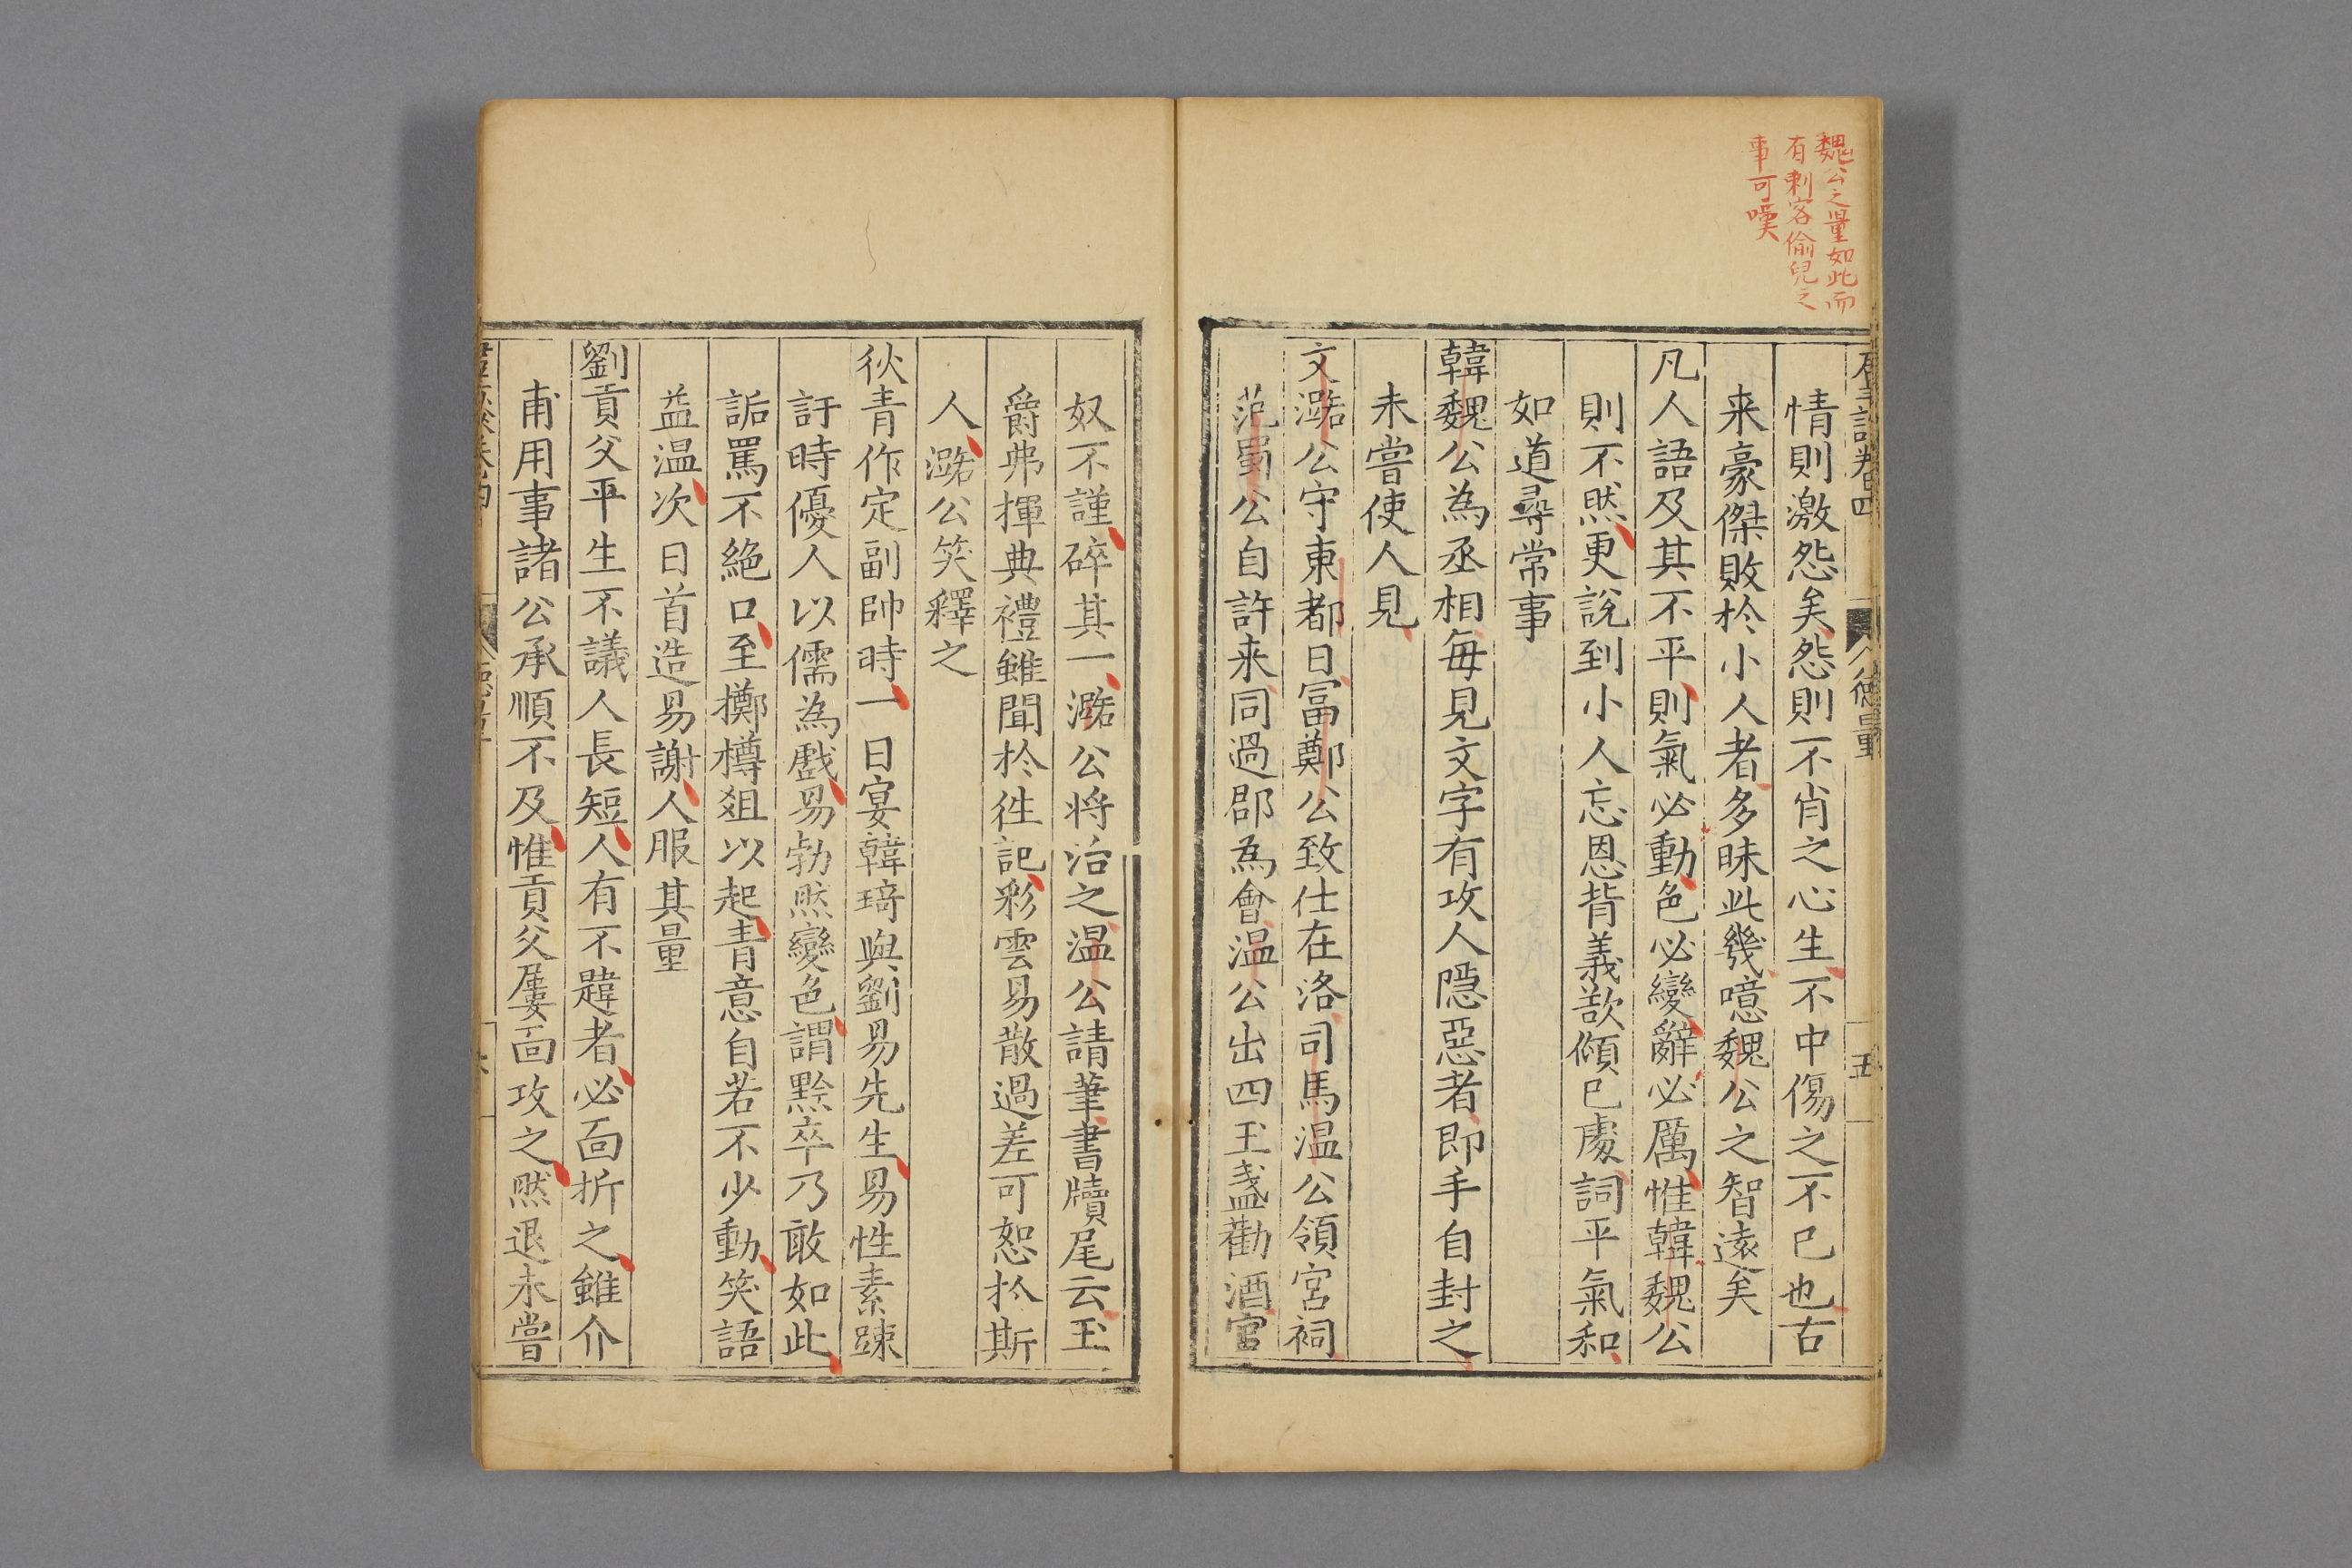 魏公之量如此而
有刺客偷兒之
事可嘆
卷四
德量
五
情則激怨矣怨則不肖之心生不中傷之不已也古
来豪傑敗扵小人者多昧此幾噫魏公之智遠矣
凡人語及其不平則氣必動色必變辭必厲惟韓魏公
則不然更說到小人忘恩背義欲傾已處詞平氣和
如道尋常事
韓魏公為丞相每見文字有攻人隠惡者即手自封之
未嘗使人見
文潞公守東都日冨鄭公致仕在洛司馬温公領宮祠
范蜀公自許来同過郡為會温公出四玉盞勸酒官
奴不謹碎其一潞公将治之温公請筆書牘尾云玉
爵弗揮典禮雖聞扵徃記彩雲易散過差可恕扵斯
人潞公笑釋之
狄青作定副帥時一日宴韓琦與劉易先生易性素踈
訐時優人以儒為戲易勃然變色謂黥卒乃敢如此
詬罵不絶口至擲樽爼以起青意自若不少動笑語
益温次日首造易謝人服其量
劉貢父平生不議人長短人有不韙者必面折之雖介
甫用事諸公承順不及惟貢父屢面攻之然退未嘗